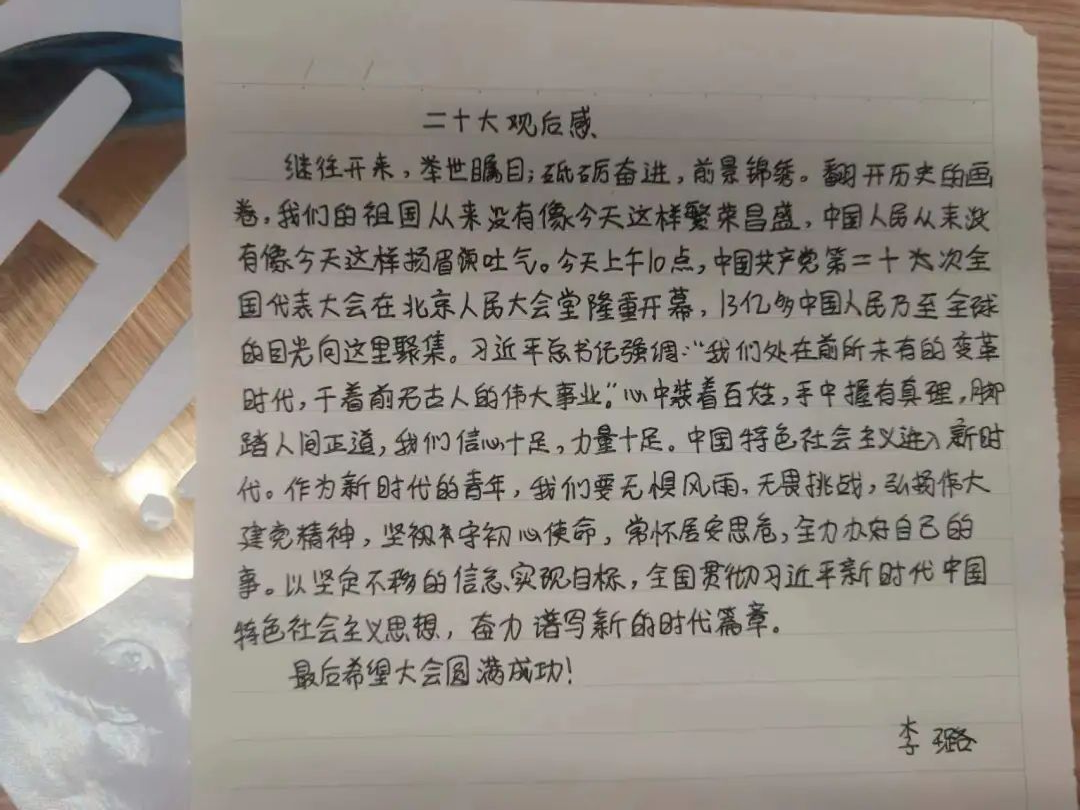 二十大观后感
继往开来，举世瞩目；砥砺奋进，前景锦绣。翻开历史的画
卷，我们的祖国从来没有像今天这样繁荣昌盛，中国人民从来没
有像今天这样扬眉吐气。今天上午10点，中国共产党第二十次全
国代表大会在北京人民大会堂隆重开幕，13亿多中国人民乃至全球
的目光向这里聚集。习近平总书记强调："我们处在前所未有的变革
时代，干着前无古人的伟大事业。"心中装着百姓，手中握有真理，脚
踏人间正道，我们信心十足，力量十足。中国特色社会主义进入新时
代。作为新时代的青年，我们要无惧风雨，无畏挑战，弘扬伟大
建党精神，坚守初心使命，常怀居安思危，全力办好自己的
事。以坚定不移的信念实现目标，全国贯彻习近平新时代中国
特色社会主义思想，奋力谱写新的时代篇章。
最后希望大会圆满成功！
李璐